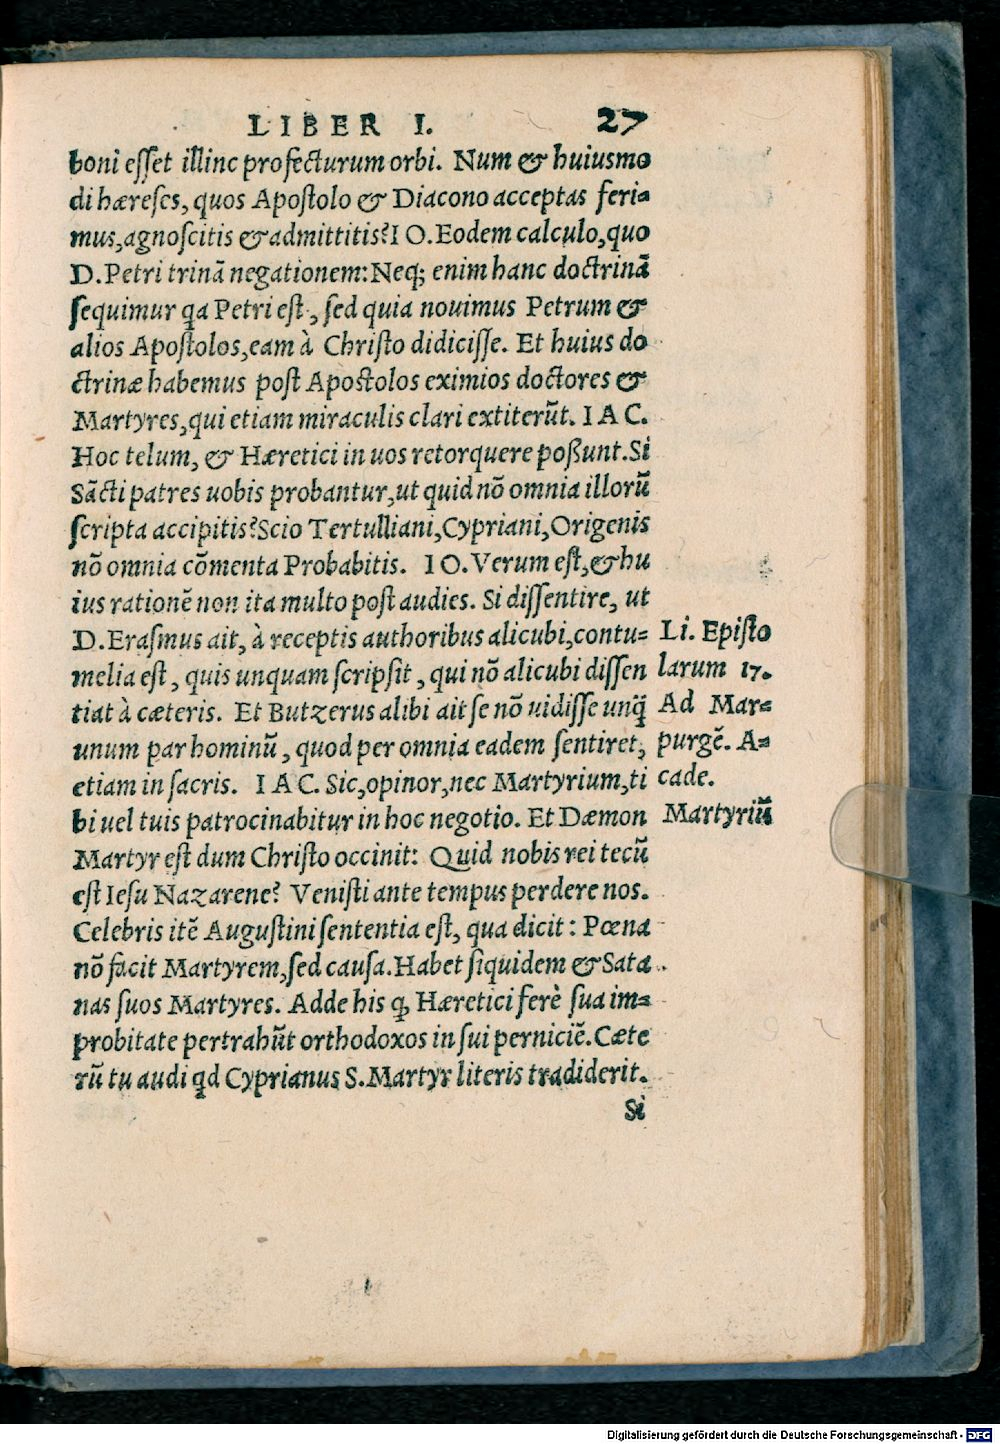 LIBER I. 27
boni eſſet illinc profecturum orbi. Num & huiusmo
di hæreſes, quos Apoſtolo & Diacono acceptas feri-
mus, agnoſcitis & admittitis? IO. Eodem calculo, quo
D. Petri trinā negationem: Neq; enim hanc doctrinā
ſequimur qa Petri eſt, ſed quia nouimus Petrum &
alios Apoſtolos, eam à Chriſto didiciſſe. Et huius do
ctrinæ habemus poſt Apoſtolos eximios doctores &
Martyres, qui etiam miraculis clari extiterūt. IAC.
Hoc telum, & Hæretici in uos retorquere poßunt. Si
Sācti patres uobis probantur, ut quid nō omnia illorū
ſcripta accipitis? Scio Tertulliani, Cypriani, Origenis
nō omnia cōmenta Probabitis. IO. Verum eſt, & hu
ius rationē non ita multo poſt audies. Si diſſentire, ut
D. Eraſmus ait, à receptis authoribus alicubi, contu-
melia eſt, quis unquam ſcripſit, qui nō alicubi diſſen
tiat à cæteris. Et Butzerus alibi ait ſe nō uidiſſe unq̄
unum par hominū, quod per omnia eadem ſentiret,
etiam in ſacris. IAC. Sic, opinor, nec Martyrium, ti
bi uel tuis patrocinabitur in hoc negotio. Et Dæmon
Martyr eſt dum Chriſto occinit: Quid nobis rei tecū
eſt Ieſu Nazarene? Veniſti ante tempus perdere nos.
Celebris itē Auguſtini ſententia eſt, qua dicit: Pœna
nō facit Martyrem, ſed cauſa. Habet ſiquidem & Sata
nas ſuos Martyres. Adde his q, Hæretici ferè ſua im-
probitate pertrahūt orthodoxos in ſui perniciē. Cæte
rū tu audi qd Cyprianus S. Martyr literis tradiderit.
Si
Li. Epiſto
larum 17.
Ad Mar-
purgē. A-
cade.
Martyriū
Digitalisierung gefördert durch die Deutsche Forschungsgemeinschaft - DFG